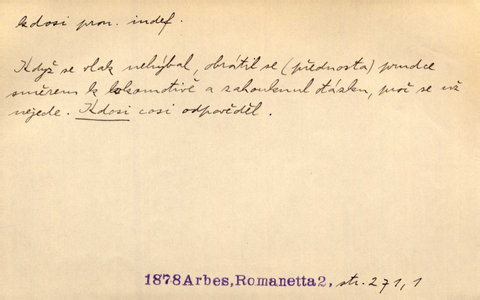 kdosi pron. indef.
Když se vlak nehýbal, obrátil se (přednosta) prudce
směrem k lokomotivě a zahouknul otázku, proč se už
nejede. Kdosi cosi odpověděl.
1878 Arbes, Romanetta 2, str. 271,1